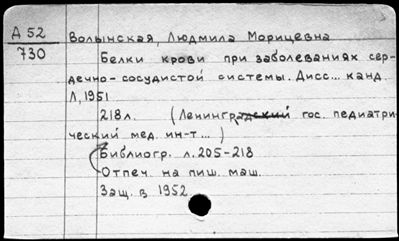 А 52
730
Волынская, Людмила Морицевна
Белки крови при заболеваниях сер-
дечно-сосудистой системы. Дисс... канд.
Л, 1951
218л. (Ленинградский гос. педиатри-
ческий мед. ин-т...)
Библиогр. л. 205-218
Отпеч. на пиш. маш.
Защ. в 1952